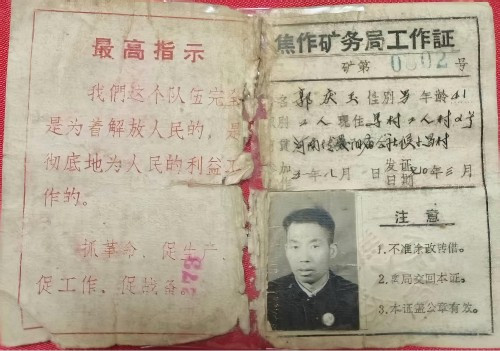 最高指示
我們这个队伍完全
是为着解放人民的，是
彻底地为人民的利益工
作的。
抓革命，促生产，
促工作，促战备
273
焦作矿务局工作証
矿第 0302 号
名 郭庆玉 性别 男 年龄 41
级别 工人 现住 马村工人村
河南
年八月 日 发证日期 70年三月
注意
1.不准涂改转借。
2.离局交回本证。
3.本证盖公章有效。